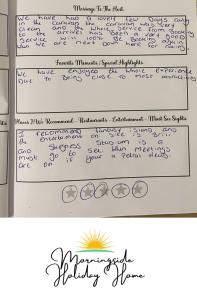 Message To The Host
We have had a lovely few days away
in the caravan the caravan was very
clean and the whole service from booking
to the arrival has been a very good
service will 100% be booking again
when we are next down here for racing
Favorite Moments / Special Highlights
We have enjoyed the whole experience
Due to being close to most
Places We Recommend - Restaurants - Entertainment - Must See Sights
I recommend fantasy island and
the entertainment on site is Brill
and Skegness Stadium is a
must go to see Race meetings
are on if your a Petrol Head.
Morningside
Holiday Home